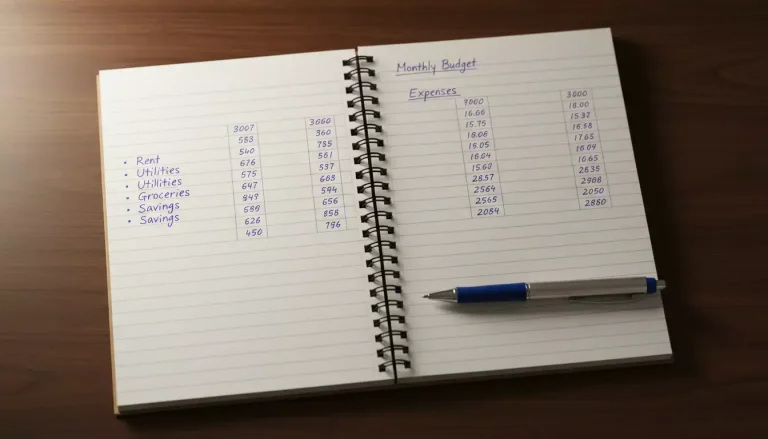 3007 3060
553 360
• Rent 540 735
• Utilities 676 561
• Utillities 575 537
• Groceries 647 665
• Savings 849 594
• Savings 589 656
626 858
450 756
Monthly Budget
Expenses
7000 3800
16.66 18.00
15.75 15.32
18.06 16.58
15.05 17.65
16.04 16.04
15.60 16.65
2857 2835
2564 2908
2565 2050
2084 2880